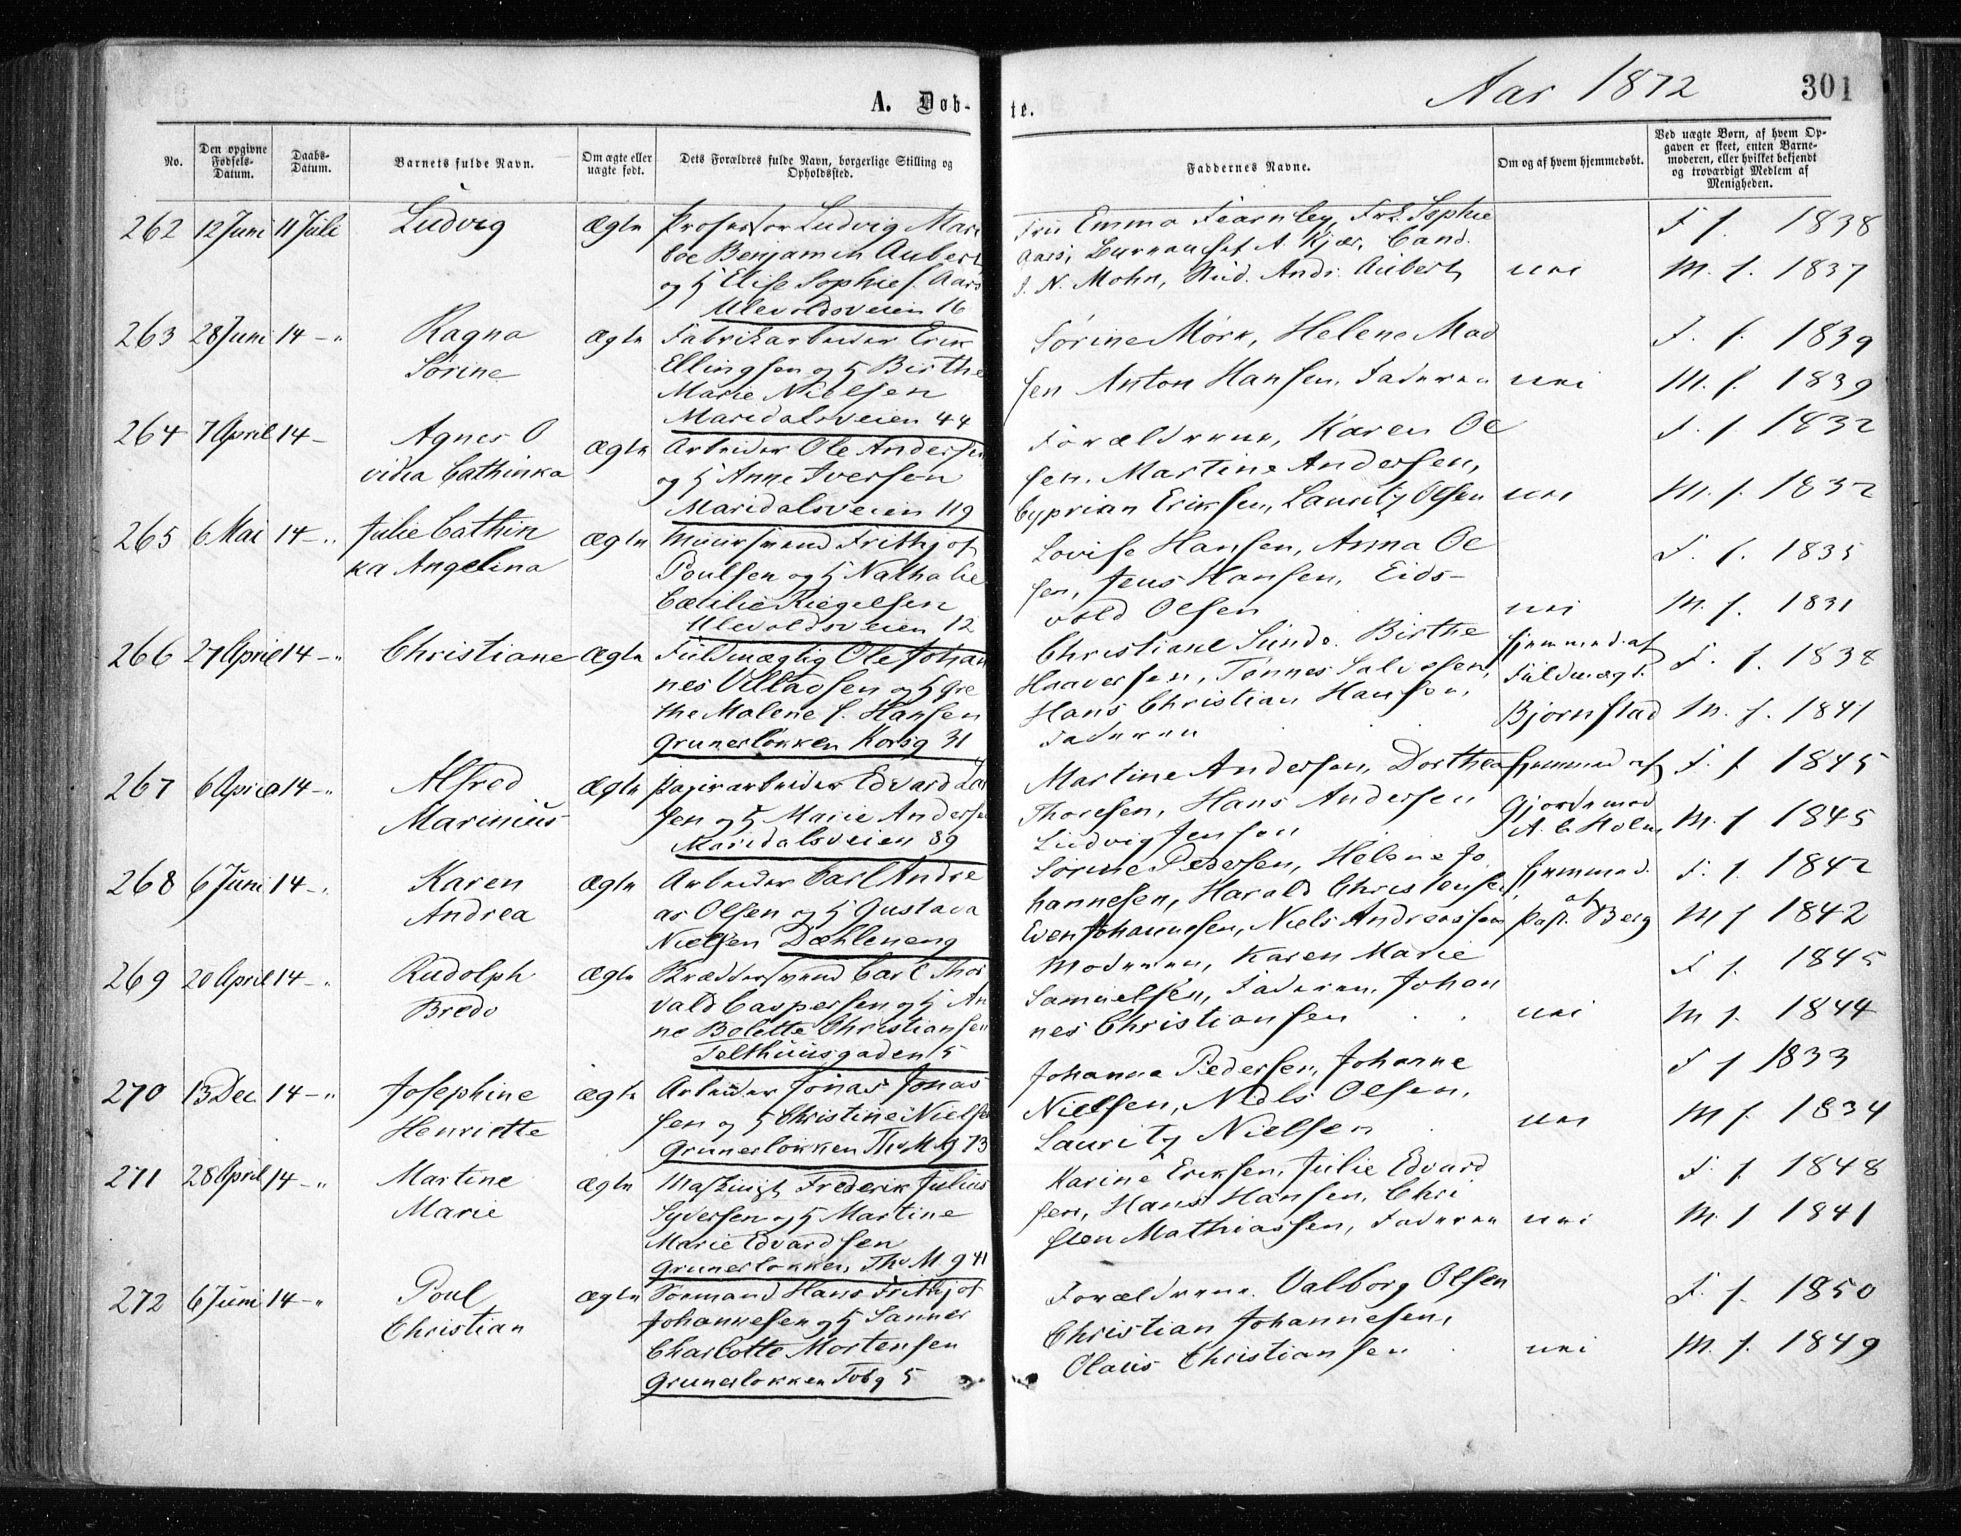 Aar 1872
301
A. Døb-
te.
No.
Den opgivne Fødsels-Datum.
Daabs-Datum.
Barnets fulde Navn.
Om ægte eller uægte født.
Dets Forældres fulde Navn, borgerlige Stilling og Opholdssted.
Faddernes Navne.
Om og af hvem hjemmedøbt.
Ved uægte Børn, af hvem Opgaven er skeet, enten Barnemoderen, eller hvilket bekjendt og troværdigt Medlem af Menigheden.
262 12 Juni 11 Juli Ludvig Ægte Professor Ludvig Mari
boe Benjamin Aubert
og H Elise Sophie f. Aars
Ulevoldsveien 16
Fru Emma Fearnley, Frk Sophie
Aars, A. Kjær, Cand.
J. N. Mohn, Stud. Andr. Aubert nei
F f. 1838
M. f. 1837
263 28 Juni 14 - " Ragna
Sørine
Ægte Fabrikarbeider Erik
Ellingsen og H Birthe
Marie Nielsen
Maridalsveien 44
Sørine Mørk, Helene Mad
sen Anton Hansen, Faderen nei
F. f. 1839
M. f. 1839
264 7 April 14 - Agnes O
vidia Cathinka
Ægte Arbeider Ole Andersen
og H Anne Iversen
Maridalsveien 119
Forældrene, Karen Ol
sen, Martine Andersen,
Cyprian Eriksen, Lauritz Olsen nei
F. f. 1832
M. f. 1832
265 6 Mai 14 - " Julie Cathin
ka Angelina
Ægte Muursvend Frithjof
Poulsen og H Nathalie
Cæcilie Riegelsen
Ulevoldsveien 12
Lovise Hansen, Anna Ol
sen, Jens Hansen, Eids-
vold Olsen nei
F. f. 1835
M. f. 1831
266 27 April 14 - " Christiane Ægte Fuldmægtig Ole Johan
nes Ulladsen og H Gre
the Malene f. Hansen
Grunerløkken Korsg 31
Christiane Sundo. Birthe
Haaversen, Tønnes Salvesen,
Hans Christian Hansen,
Faderen
hjemmed. af
Fuldmægt.
Bjørnstad
F. f. 1838
M. f. 1841
267 6 April 14 - " Alfred
Marinius
Ægte Papirarbeider Edvard Lar
sen og H Marie Anderse
Maridalsveien 89
Martine Andersen, Dorthea
Thoresen, Hans Andersen
Ludvig Jensen
hjemmed af
Gjordemod
A. C. Holm
F. f. 1845
M. f 1845
268 6 Juni 14 - " Karen
Andrea
Ægte Arbeider Carl Andre
as Olsen og H Gustava
Nielsen Dæhleneng
Sørine Pedersen, Helene Jo
hannesen, Harald Christensen,
Even Johannesen, Niels Andreassen
hjemmed.
af
Past. Berg
F. f. 1842
M f 1842
269 20 April 14 - " Rudolph
Bredo
Ægte Bræddersvend Carl Thor
vald Caspersen og H An
ne Bolette Christiansen
Telthuusgaden 5
Moderen, Karen Marie
Samuelsen, Faderen, Johan
nes Christiansen nei
F f. 1845
M f. 1844
270 13 Dec 14 - " Josephine
Henriette
Ægte Arbeider Jonas Jonas
sen og H Christine Nielse
Grunerløkken Th M g 73
Johanna Pedersen, Johanne
Nielsen, Niels Olsen,
Lauritz Nielsen nei
F f 1833
M f. 1834
271 28 April 14 - " Martine
Marie
Ægte Maskingt Frederik Julius
Syversen og H Martine
Marie Edvardsen
Grunerløkken, Thv M g 41
Karine Eriksen, Julie Edvard
sen, Hans Hansen, Chri
sten Mathiassen, Faderen nei
F. f. 1848
M. f 1841
272 6 Juni 14 - " Poul
Christian
Ægte Tømmand Hans Frithjof
Johannesen og H Sanner
Charlotte Mortensen
Grunerløkken Tobg 5
Forældrene. Valborg Olsen
Christian Johannesen,
Olaus Christiansen nei
F. f. 1850
M. f. 1849